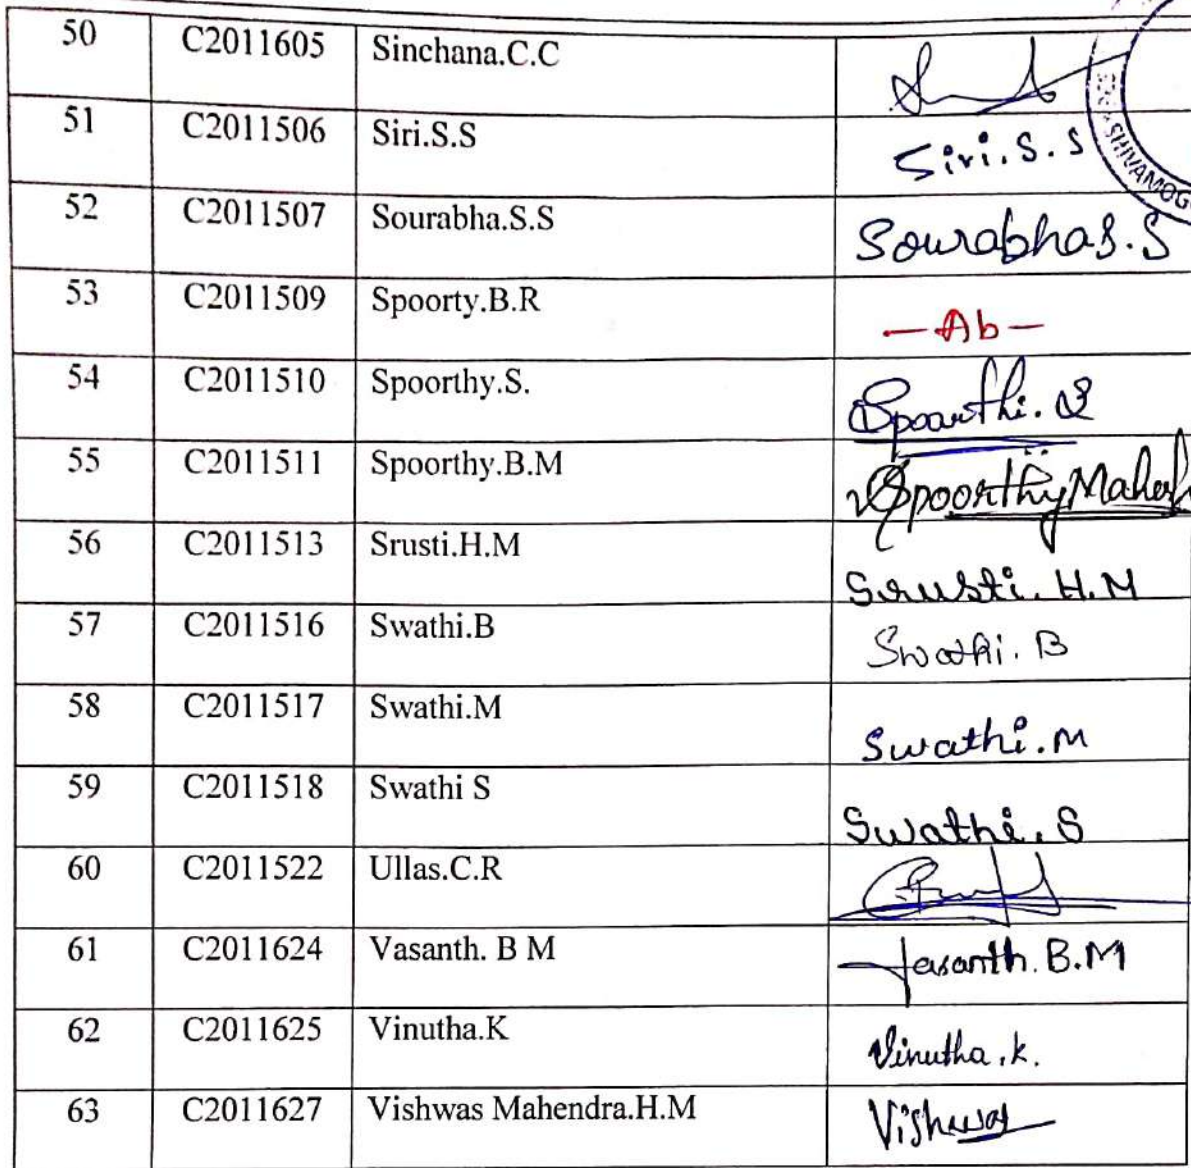 50 C2011605 Sinchana.C.C
51 C2011506 Siri.S.S Siri.S.S
52 C2011507 Sourabha.S.S Sourabha S.S
53 C2011509 Spoorty.B.R —Ab—
54 C2011510 Spoorthy.S. Spoorthi.S
55 C2011511 Spoorthy.B.M Spoorthy Mahesh
56 C2011513 Srusti.H.M Srusti.H.M
57 C2011516 Swathi.B Swathi.B
58 C2011517 Swathi.M Swathi.M
59 C2011518 Swathi S Swathi.S
60 C2011522 Ullas.C.R
61 C2011624 Vasanth. B M Vasanth.B.M
62 C2011625 Vinutha.K Vinutha.k.
63 C2011627 Vishwas Mahendra.H.M Vishwas